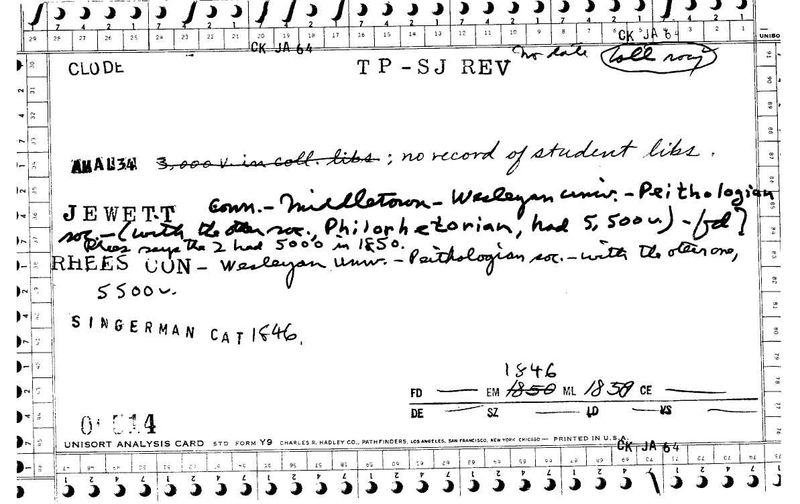 CK JA 64 CK JA 64
CLODE TP-SJ REV No date Coll socy
AMAL34 3,000 v. in coll. libs; no record of student libs.
JEWETT Conn.- Middletown - Wesleyan Univ. - Peithologian
soc. - (with the other soc., Philorhetorian, had 5,500 v.) - fd?
Rhees says the 2 had 5000 in 1850.
RHEES CON - Wesleyan Univ. - Peithologian soc. - with the other one,
5500 v.
SINGERMAN CAT 1846.
1846
FD EM 1850 ML 1850 CE
DE SZ LD VS
UNISORT ANALYSIS CARD STD FORM Y9 CHARLES R. HADLEY CO., PATHFINDERS, LOS ANGELES, SAN FRANCISCO, NEW YORK CHICAGO — PRINTED IN U.S.A.
CK JA 64